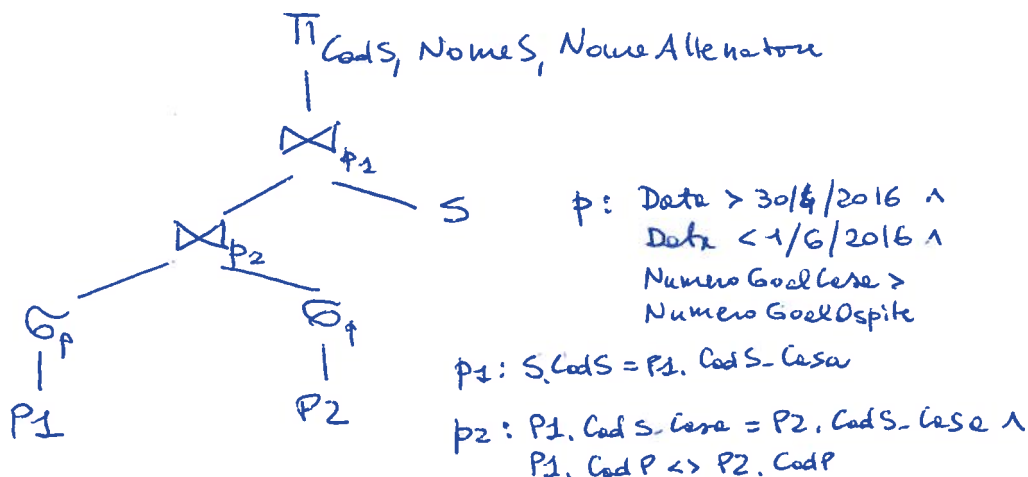 Π CodS, NomeS, NomeAllenatore
⋈ p1
S
⋈ p2
σp
σp
P1
P2
p: Data > 30/4/2016 ∧
Data < 1/6/2016 ∧
NumeroGoalCasa >
NumeroGoalOspite
p1: S.CodS = P1.CodS_Casa
p2: P1.CodS_Casa = P2.CodS_Casa ∧
P1.CodP <> P2.CodP